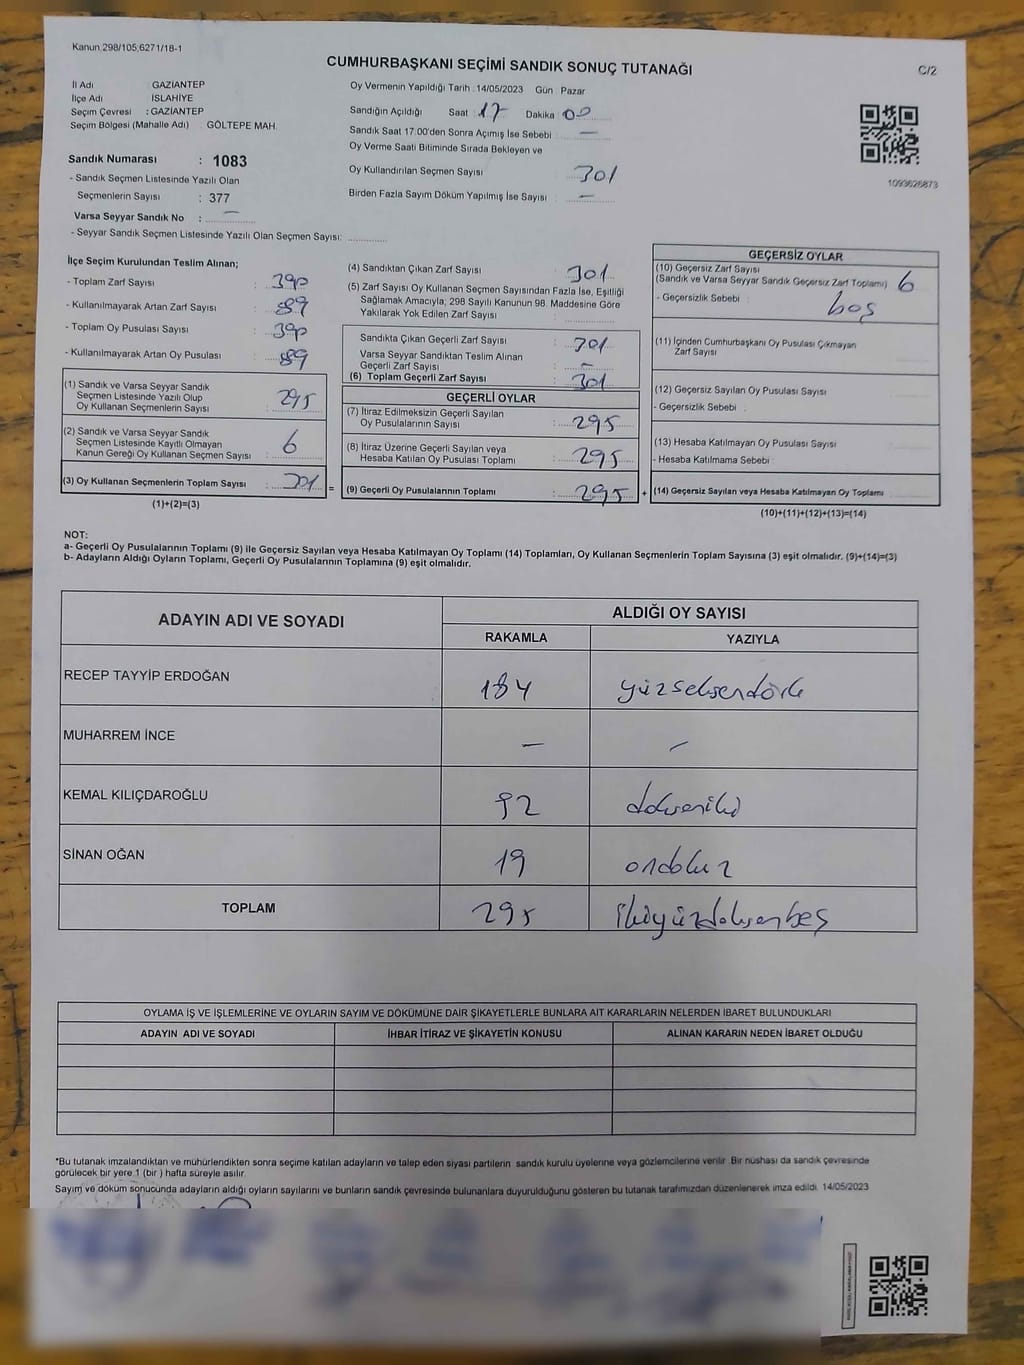 Kanun 298/105,6271/18-1
CUMHURBAŞKANI SEÇİMİ SANDIK SONUÇ TUTANAĞI
C/2
İl Adı : GAZİANTEP
İlçe Adı : İSLAHİYE
Seçim Çevresi : GAZİANTEP
Seçim Bölgesi (Mahalle Adı) : GÖLTEPE MAH.
Sandık Numarası : 1083
- Sandık Seçmen Listesinde Yazılı Olan
Seçmenlerin Sayısı : 377
Varsa Seyyar Sandık No : —
- Seyyar Sandık Seçmen Listesinde Yazılı Olan Seçmen Sayısı:
Oy Vermenin Yapıldığı Tarih : 14/05/2023 Gün : Pazar
Sandığın Açıldığı Saat : 17 Dakika 00
Sandık Saat 17:00'den Sonra Açımış İse Sebebi : —
Oy Verme Saati Bitiminde Sırada Bekleyen ve
Oy Kullandırılan Seçmen Sayısı : 301
Birden Fazla Sayım Döküm Yapılmış İse Sayısı : —
1093626873
İlçe Seçim Kurulundan Teslim Alınan;
- Toplam Zarf Sayısı : 390
- Kullanılmayarak Artan Zarf Sayısı : 89
- Toplam Oy Pusulası Sayısı : 390
- Kullanılmayarak Artan Oy Pusulası : 89
(1) Sandık ve Varsa Seyyar Sandık
Seçmen Listesinde Yazılı Olup
Oy Kullanan Seçmenlerin Sayısı : 295
(2) Sandık ve Varsa Seyyar Sandık
Seçmen Listesinde Kayıtlı Olmayan
Kanun Gereği Oy Kullanan Seçmen Sayısı : 6
(3) Oy Kullanan Seçmenlerin Toplam Sayısı : 301 =
(1)+(2)=(3)
(4) Sandıktan Çıkan Zarf Sayısı : 301
(5) Zarf Sayısı Oy Kullanan Seçmen Sayısından Fazla İse, Eşitliği
Sağlamak Amacıyla; 298 Sayılı Kanunun 98. Maddesine Göre
Yakılarak Yok Edilen Zarf Sayısı :
Sandıkta Çıkan Geçerli Zarf Sayısı : 301
Varsa Seyyar Sandıktan Teslim Alınan
Geçerli Zarf Sayısı : —
(6) Toplam Geçerli Zarf Sayısı : 301
GEÇERLİ OYLAR
(7) İtiraz Edilmeksizin Geçerli Sayılan
Oy Pusulalarının Sayısı : 295
(8) İtiraz Üzerine Geçerli Sayılan veya
Hesaba Katılan Oy Pusulası Toplamı : 295
(9) Geçerli Oy Pusulalarının Toplamı : 295 +
GEÇERSİZ OYLAR
(10) Geçersiz Zarf Sayısı
(Sandık ve Varsa Seyyar Sandık Geçersiz Zarf Toplamı) : 6
- Geçersizlik Sebebi : boş
(11) İçinden Cumhurbaşkanı Oy Pusulası Çıkmayan
Zarf Sayısı
(12) Geçersiz Sayılan Oy Pusulası Sayısı :
- Geçersizlik Sebebi :
(13) Hesaba Katılmayan Oy Pusulası Sayısı :
- Hesaba Katılmama Sebebi :
(14) Geçersiz Sayılan veya Hesaba Katılmayan Oy Toplamı :
(10)+(11)+(12)+(13)=(14)
NOT:
a- Geçerli Oy Pusulalarının Toplamı (9) ile Geçersiz Sayılan veya Hesaba Katılmayan Oy Toplamı (14) Toplamları, Oy Kullanan Seçmenlerin Toplam Sayısına (3) eşit olmalıdır. (9)+(14)=(3)
b- Adayların Aldığı Oyların Toplamı, Geçerli Oy Pusulalarının Toplamına (9) eşit olmalıdır.
ADAYIN ADI VE SOYADI
ALDIĞI OY SAYISI
RAKAMLA YAZIYLA
RECEP TAYYİP ERDOĞAN 184 yüzseksendört
MUHARREM İNCE — —
KEMAL KILIÇDAROĞLU 92 doksaniki
SİNAN OĞAN 19 ondokuz
TOPLAM 295 ikiyüzdoksanbeş
OYLAMA İŞ VE İŞLEMLERİNE VE OYLARIN SAYIM VE DÖKÜMÜNE DAİR ŞİKAYETLERLE BUNLARA AİT KARARLARIN NELERDEN İBARET BULUNDUKLARI
ADAYIN ADI VE SOYADI İHBAR İTİRAZ VE ŞİKAYETİN KONUSU ALINAN KARARIN NEDEN İBARET OLDUĞU
*Bu tutanak imzalandıktan ve mühürlendikten sonra seçime katılan adayların ve talep eden siyasi partilerin sandık kurulu üyelerine veya gözlemcilerine verilir. Bir nüshası da sandık çevresinde
görülecek bir yere 1 (bir ) hafta süreyle asılır.
Sayım ve döküm sonucunda adayların aldığı oyların sayılarını ve bunların sandık çevresinde bulunanlara duyurulduğunu gösteren bu tutanak tarafımızdan düzenlenerek imza edildi. 14/05/2023